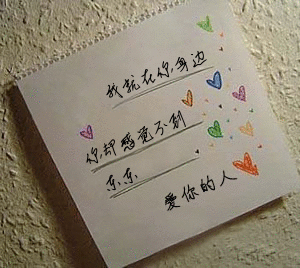 我就在你身边
你却感觉不到
东东
爱你的人